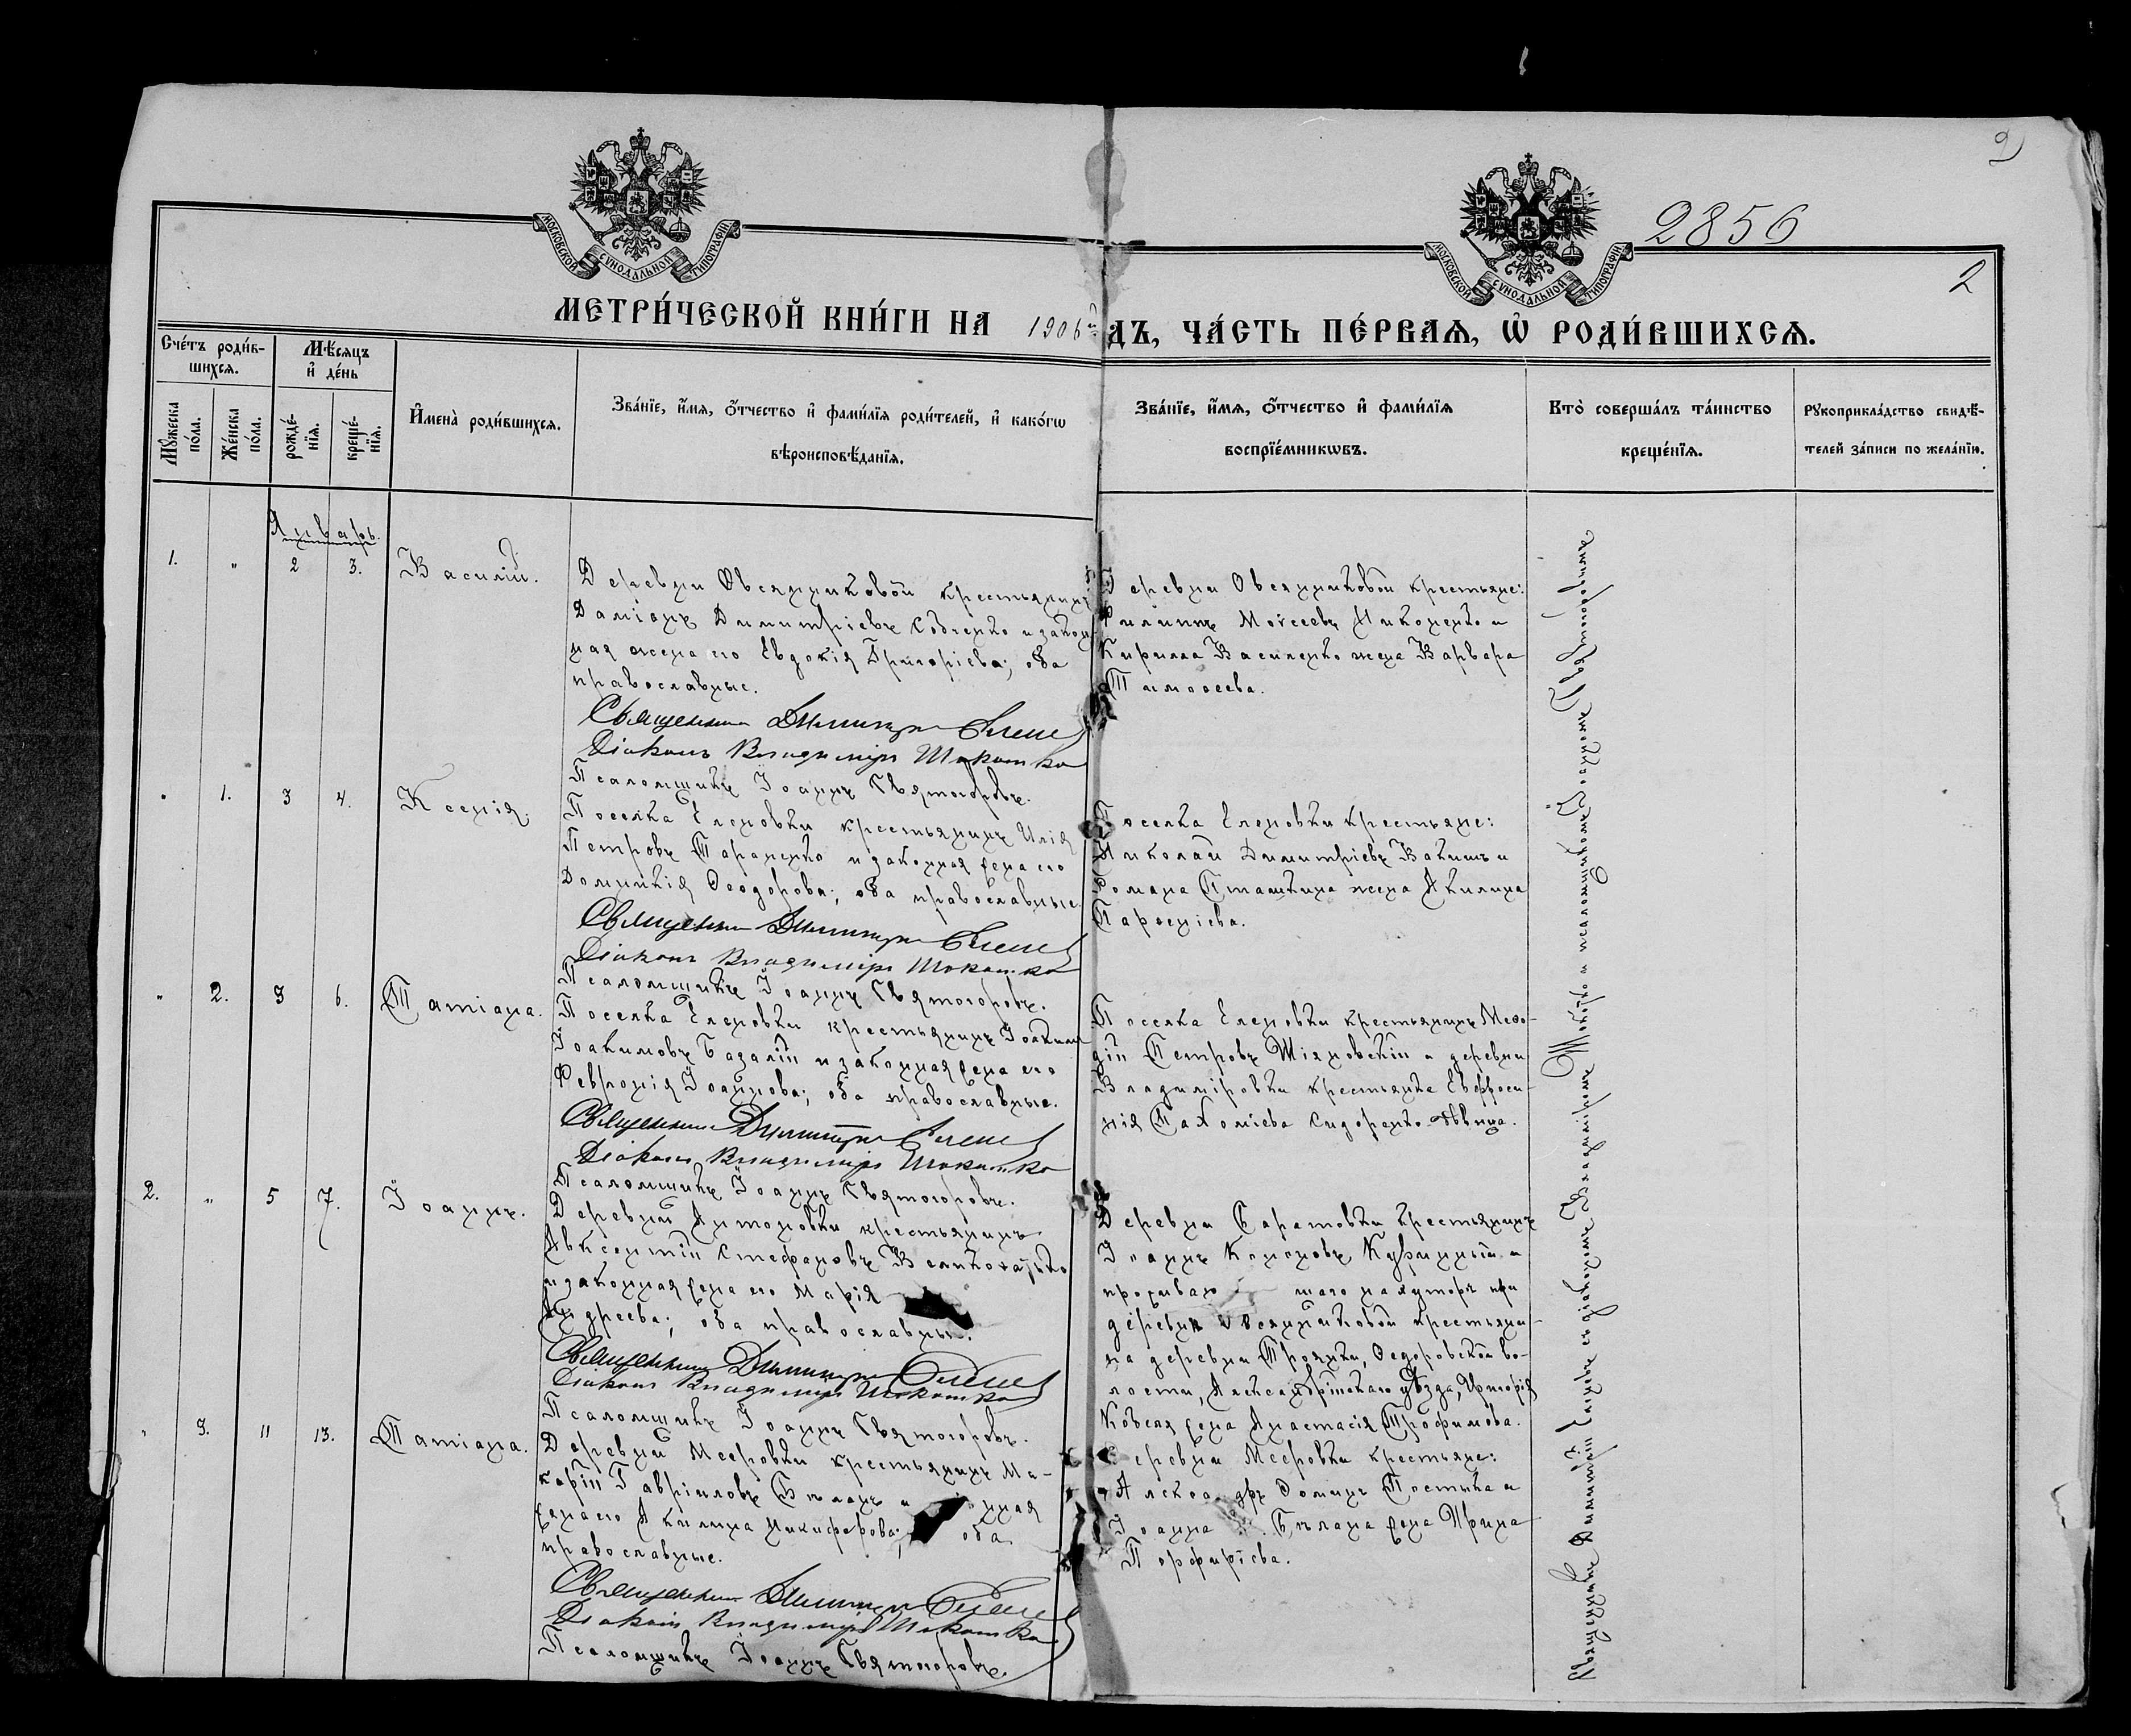 2
МОСКОВСКОЙ СѴНОДАЛЬНОЙ ТИПОГРАФІИ
МОСКОВСКОЙ СѴНОДАЛЬНОЙ ТИПОГРАФІИ
2856
2
МЕТРИ́ЧЕСКОЙ КНИ́ГИ НА 1906 ДЪ, ЧА́СТЬ ПЕ́РВАѦ, Ѡ҆ РОДИ́ВШИХСѦ.
Сче́тъ роди́в-
шихсѧ.
Мѣ́сѧцъ
и҆ де́нь
Мꙋ́жеска
по́ла.
Же́нска
по́ла.
рожде́-
нїѧ.
креще́-
нїѧ.
И҆мена̀ роди́вшихсѧ.
Зва́нїе, и҆́мѧ, ѻ҆́тчество и҆ фами́лїѧ роди́телей, и҆ како́гѡ
вѣроисповѣ́данїѧ.
Зва́нїе, и҆́мѧ, ѻ҆́тчество и҆ фами́лїѧ
воспрїе́мникѡвъ.
Кто̀ соверша́лъ та́инство
креще́нїѧ.
Рꙋкоприкла́дство свидѣ́-
телей за́писи по жела́нїю.
Январь.
1. " 2 3. Василій.
Деревни Овсянниковой крестьянинъ
Даміанъ Димитріевъ Собченко и закон-
ная жена его Евдокія Григоріева; оба
православные.
Священникъ Димитрій
Діаконъ Владиміръ Шокотко
Псаломщикъ Іоаннъ Святогоровъ.
Деревни Овсянниковой крестьяне:
Филиппъ Моѵсеевъ Никоненко и
Кирилла Василенко жена Варвара
Тимоѳеева.
" 1. 3 4. Ксенія.
Поселка Еленовки крестьянинъ Илія
Петровъ Тараненко и законная жена его
Домникія Ѳеодорова; оба православные.
Священникъ Димитрій
Діаконъ Владиміръ Шокотко
Псаломщикъ Іоаннъ Святогоровъ.
Поселка Еленовки крестьяне:
Николай Димитріевъ Вакишъ и
Романа Пташкина жена Акилина
Парѳеніева.
" 2. 3 6. Татіана.
Поселка Еленовки крестьянинъ Іоакимъ
Іоакимовъ Базалій и законная жена его
Февронія Іоаннова; оба православные.
Священникъ Димитрій
Діаконъ Владиміръ Шокотко
Псаломщикъ Іоаннъ Святогоровъ.
Поселка Еленовки крестьянинъ Меѳо-
дій Петровъ Шіяновскій и деревни
Владиміровки крестьянка Евфроси-
нія Пахоміева Сидоренко дѣвица.
2. " 5 7. Іоаннъ.
Деревни Антоновки крестьянинъ
Авксентій Стефановъ
и законная жена его Марія
Андреева; оба православные.
Священникъ Димитрій
Діаконъ Владиміръ Шокотко
Псаломщикъ Іоаннъ Святогоровъ.
Деревни Саратовки крестьянинъ
Іоаннъ Кононовъ и
шаго на хуторѣ при
деревни Овсянниковой крестьяни-
на деревни Троянки, Ѳедоровской во-
лости, Александрійскаго уѣзда, Григорія
Ковеля жена Анастасія Трофимова.
" 3. 11 13. Татіана.
Деревни Мееровки крестьянинъ Ма-
карій Гавріиловъ Бѣланъ и нная
жена его Акилина Никифорова; оба
православные.
Священникъ Димитрій
Діаконъ Владиміръ Шокотко
Псаломщикъ Іоаннъ Святогоровъ.
Деревни Мееровки крестьяне:
Александръ Постыка и
Іоанна Бѣлана жена Ирина
Порфиріева.
Священникъ Димитрій съ діакономъ Владиміромъ Шокотко и псаломщикомъ Іоанномъ Святогоровымъ